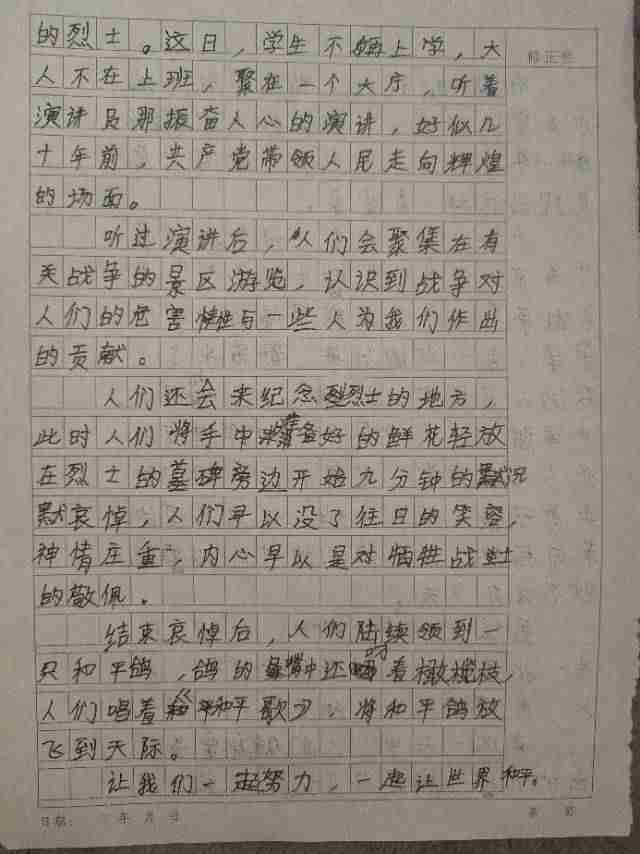 的烈士。这日，学生不再上学，大
修正栏
人不在上班，聚在一个大厅，听着
演讲员那振奋人心的演讲，好似几
十年前，共产党带领人民走向辉煌
的场面。
听过演讲后，人们会聚集在有
关战争的景区游览，认识到战争对
人们的危害性与一些人为我们作出
的贡献。
人们还会来纪念烈士的地方，
此时人们将手中准备好的鲜花轻放
在烈士的墓碑旁边开始九分钟的默
默哀悼，人们早以没了往日的笑容，
神情庄重，内心早以是对牺牲战士
的敬佩。
结束哀悼后，人们陆续领到一
只和平鸽，鸽的嘴中还叼着橄榄枝，
人们唱着《和平歌》，将和平鸽放
飞到天际。
让我们一起努力，一起让世界和平。
日期： 年 月 日
第 页